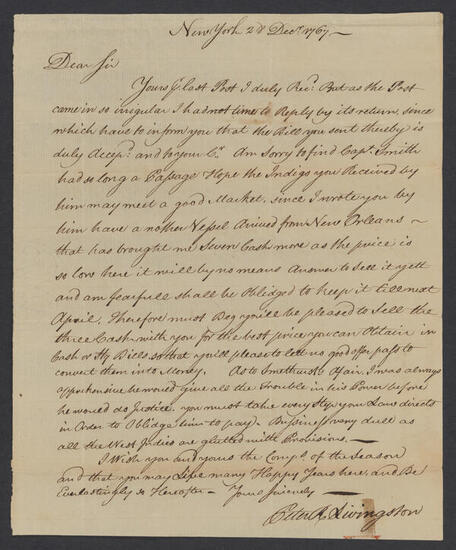 New York 28 Decr. 1767
Dear Sir
Yours ⅌ last Post I duly Recd. But as the Post
came in so irregular I had not time to Reply by its return, since
which have to inform you that the Bill you sent thereby is
duly Accepd. and to your Ct. Am Sorry to find Capt. Smith
had so long a Passage Hope the Indigo you Received by
him may meet a good Market, since I wrote you by
him have a nother Vessel Arived from New Orleans
that has brought me Seven Casks more as the price is
so low here it will by no means Answer to Sell it yett
and am fearfull shall be Obliged to keep it till next
April. Therefore must Beg you'le be pleased to Sell the
three Casks with you for the best price you can Obtain in
Cash or Bills so that you'll please to let no good offer pass to
convert them into Money. As to Smethurst's Afair I was always
apprehensive he would give all the Trouble in his Power before
he would do Justice. you must take every Step your Laws directs
in Order to Obledge him to pay. Bussiness very dull as
all the West Indies are glutted with Provisions.
I Wish you and yours the Compts. of the Season
and that you may Live many Happy Years here, and Be
Everlastingly so Hereafter. Your Sincerely
Peter R Livingston